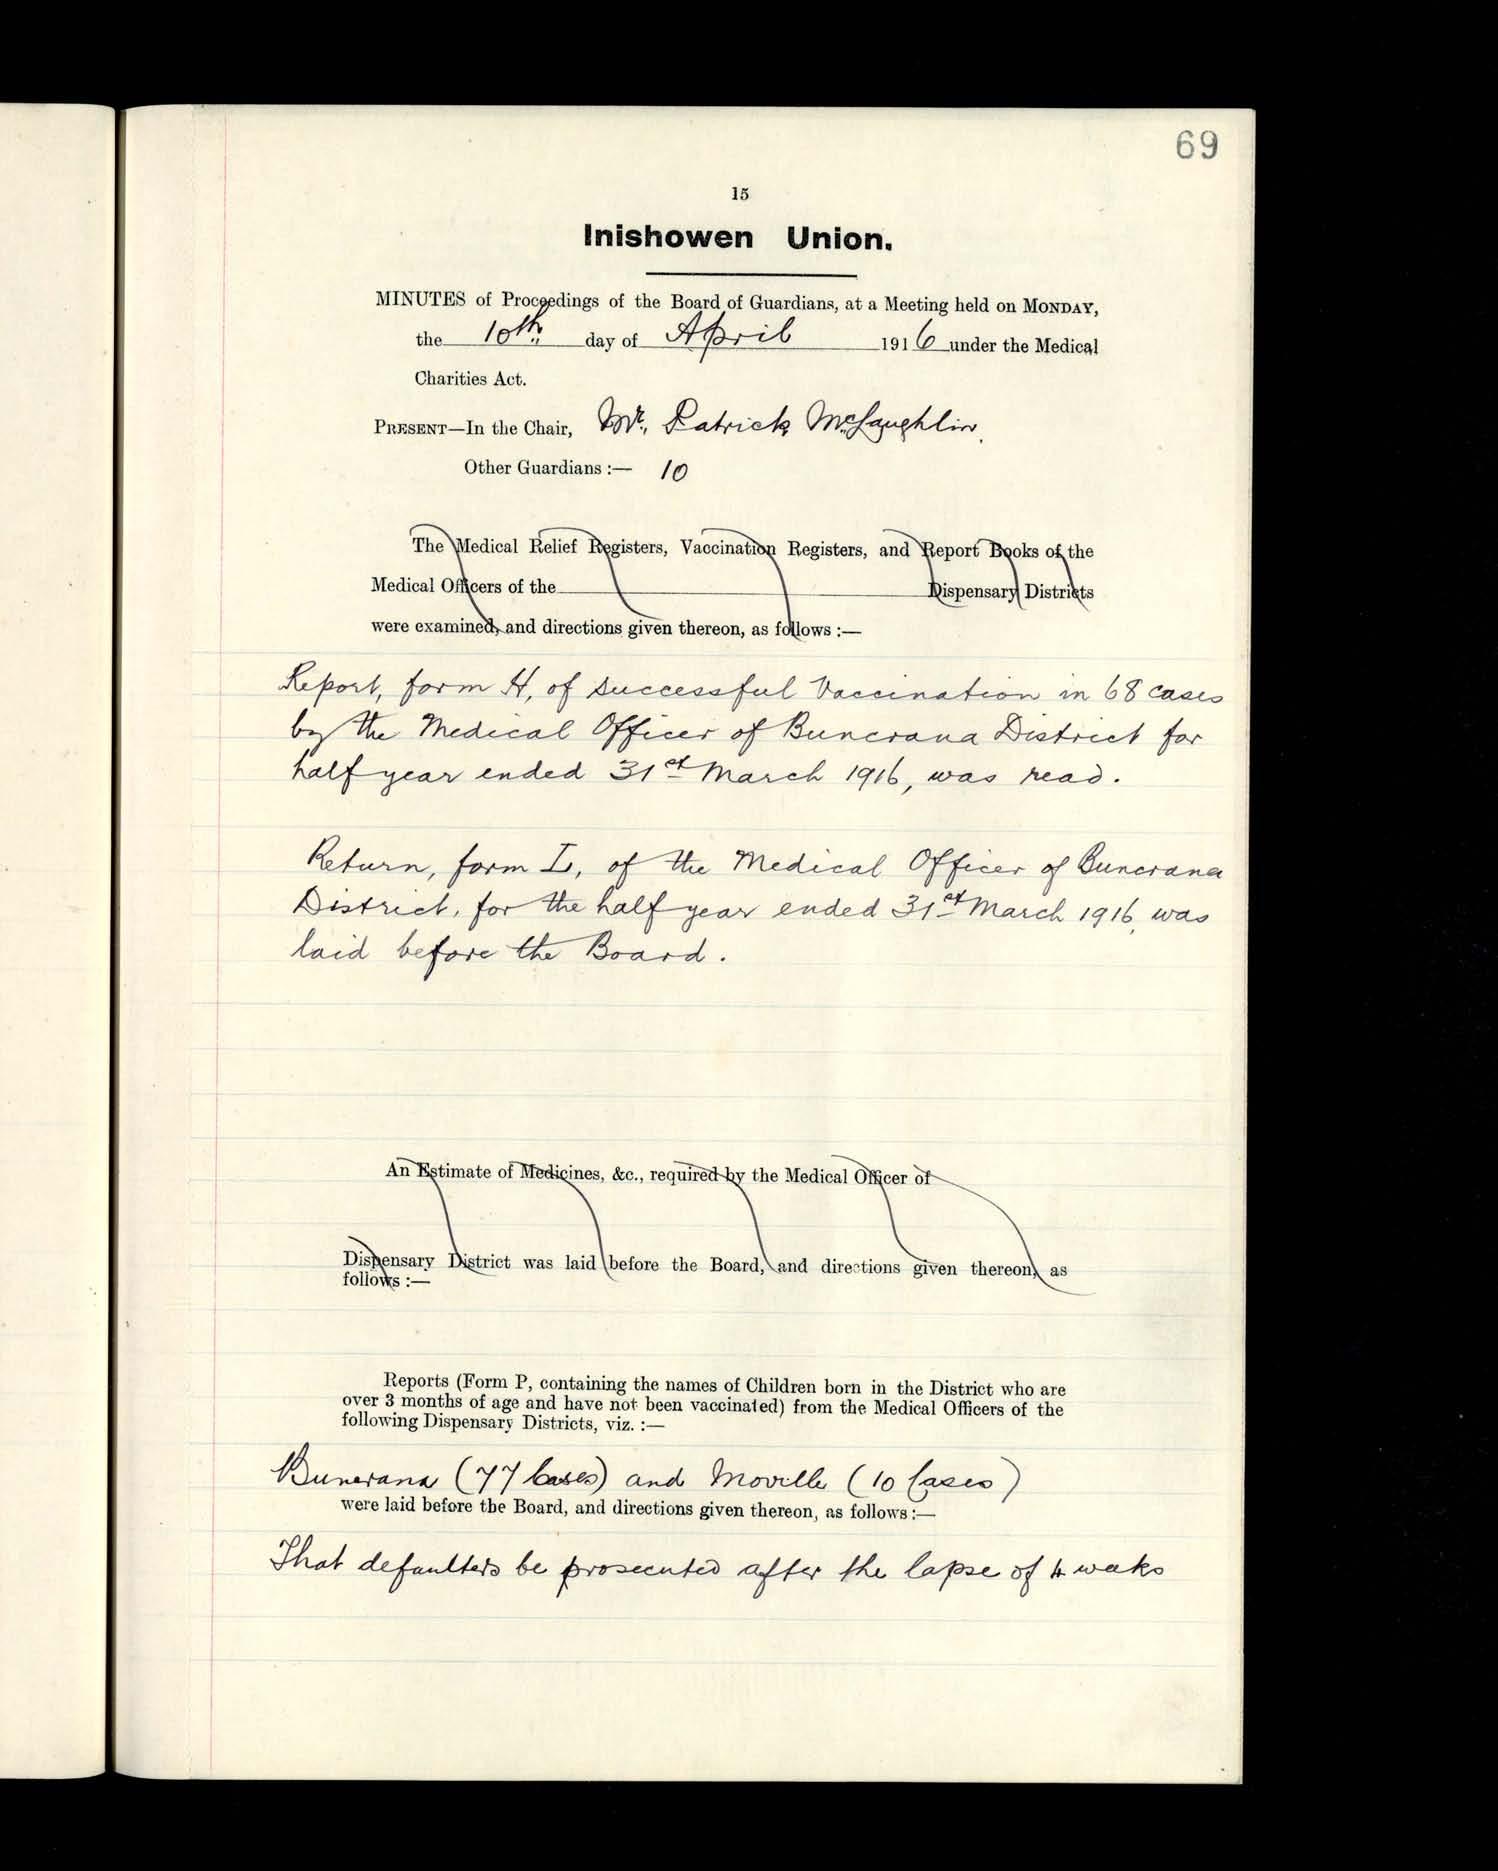 69
15
Inishowen Union.
MINUTES of Proceedings of the Board of Guardians, at a Meeting held on MONDAY,
the 10th day of April 1916 under the Medical
Charities Act.
PRESENT—In the Chair, Mr. Patrick McLaughlin.
Other Guardians :— 10
The Medical Relief Registers, Vaccination Registers, and Report Books of the
Medical Officers of the Dispensary Districts
were examined, and directions given thereon, as follows :—
Report, form H, of successful Vaccination in 68 cases
by the Medical Officer of Buncrana District for
half year ended 31st March 1916, was read.
Return, form I, of the Medical Officer of Buncrana
District, for the half year ended 31st March 1916, was
laid before the Board.
An Estimate of Medicines, &c., required by the Medical Officer of
Dispensary District was laid before the Board, and directions given thereon, as
follows :—
Reports (Form P, containing the names of Children born in the District who are
over 3 months of age and have not been vaccinated) from the Medical Officers of the
following Dispensary Districts, viz. :—
Buncrana (77 Cases) and Moville (10 Cases)
were laid before the Board, and directions given thereon, as follows :—
That defaulters be prosecuted after the lapse of 4 weeks